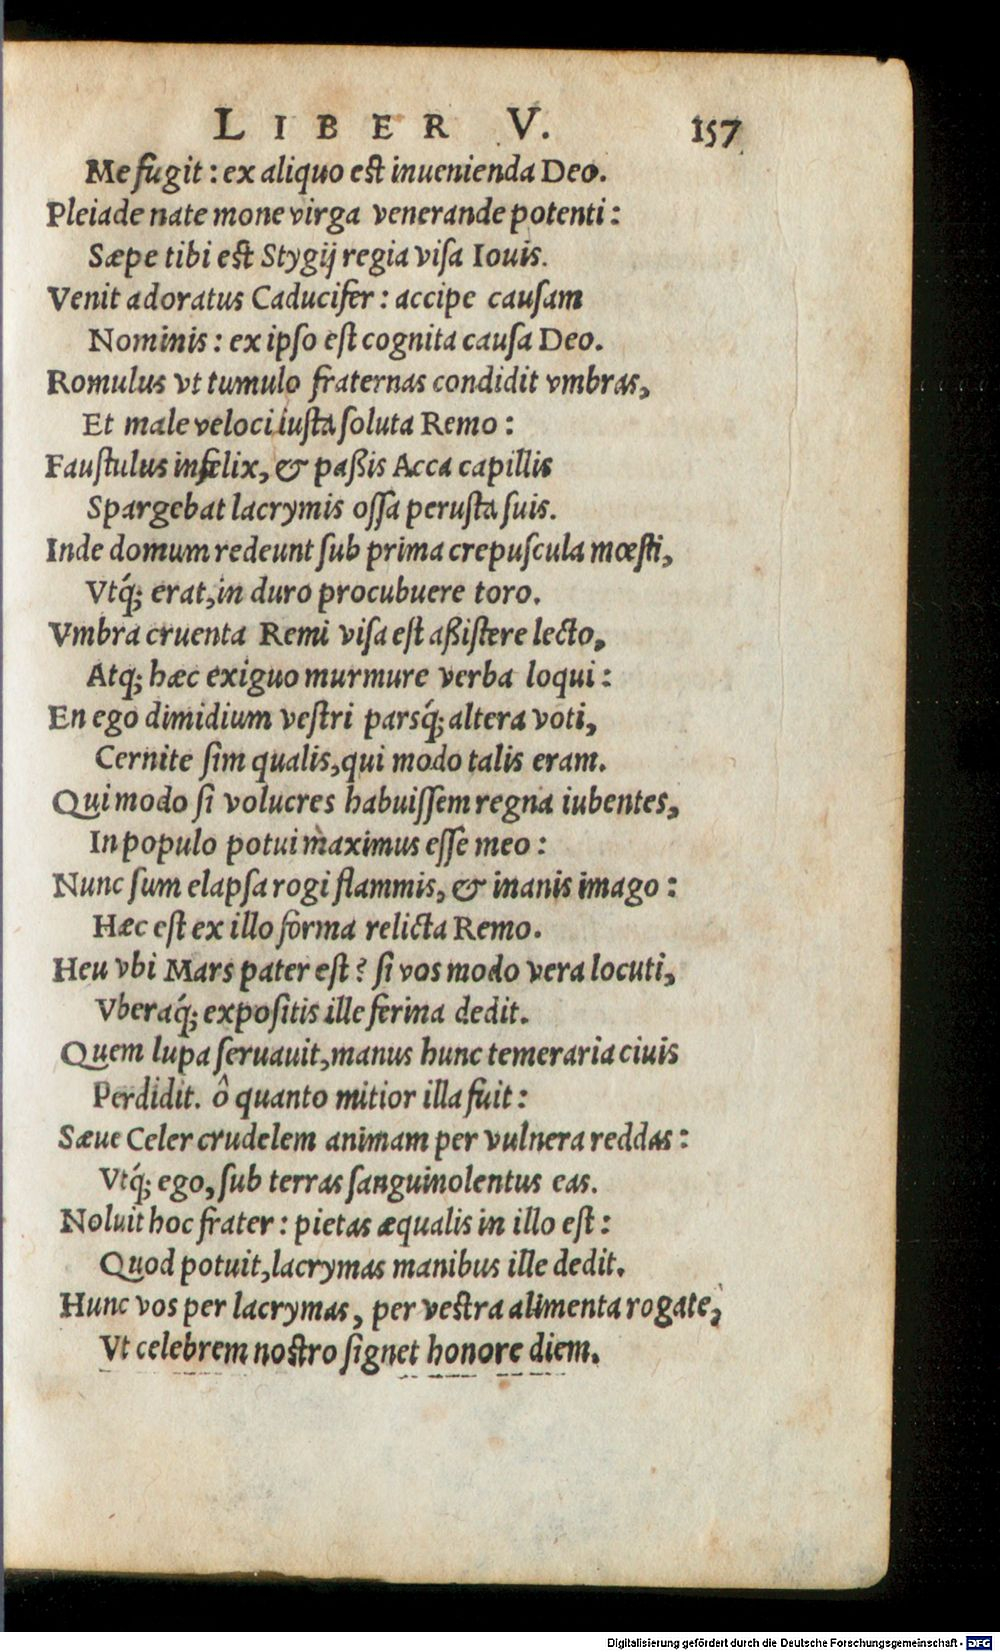 LIBER V. 157
Me fugit : ex aliquo est inuenienda Deo.
Pleiade nate mone virga venerande potenti :
Sæpe tibi est Stygij regia visa Iouis.
Venit adoratus Caducifer : accipe causam
Nominis : ex ipso est cognita causa Deo.
Romulus vt tumulo fraternas condidit vmbras,
Et male veloci iusta soluta Remo :
Faustulus infelix, & paßis Acca capillis
Spargebat lacrymis ossa perusta suis.
Inde domum redeunt sub prima crepuscula mœsti,
Vtq́; erat, in duro procubuere toro.
Vmbra cruenta Remi visa est aßistere lecto,
Atq; hæc exiguo murmure verba loqui :
En ego dimidium vestri parsq́; altera voti,
Cernite sim qualis, qui modo talis eram.
Qui modo si volucres habuissem regna iubentes,
In populo potui maximus esse meo :
Nunc sum elapsa rogi flammis, & inanis imago :
Hæc est ex illo forma relicta Remo.
Heu vbi Mars pater est ? si vos modo vera locuti,
Vberaq́; expositis ille ferina dedit.
Quem lupa seruauit, manus hunc temeraria ciuis
Perdidit. ô quanto mitior illa fuit :
Sæue Celer crudelem animam per vulnera reddas :
Vtq́; ego, sub terras sanguinolentus eas.
Noluit hoc frater : pietas æqualis in illo est :
Quod potuit, lacrymas manibus ille dedit.
Hunc vos per lacrymas, per vestra alimenta rogate,
Vt celebrem nostro signet honore diem.
Digitalisierung gefördert durch die Deutsche Forschungsgemeinschaft - DFG